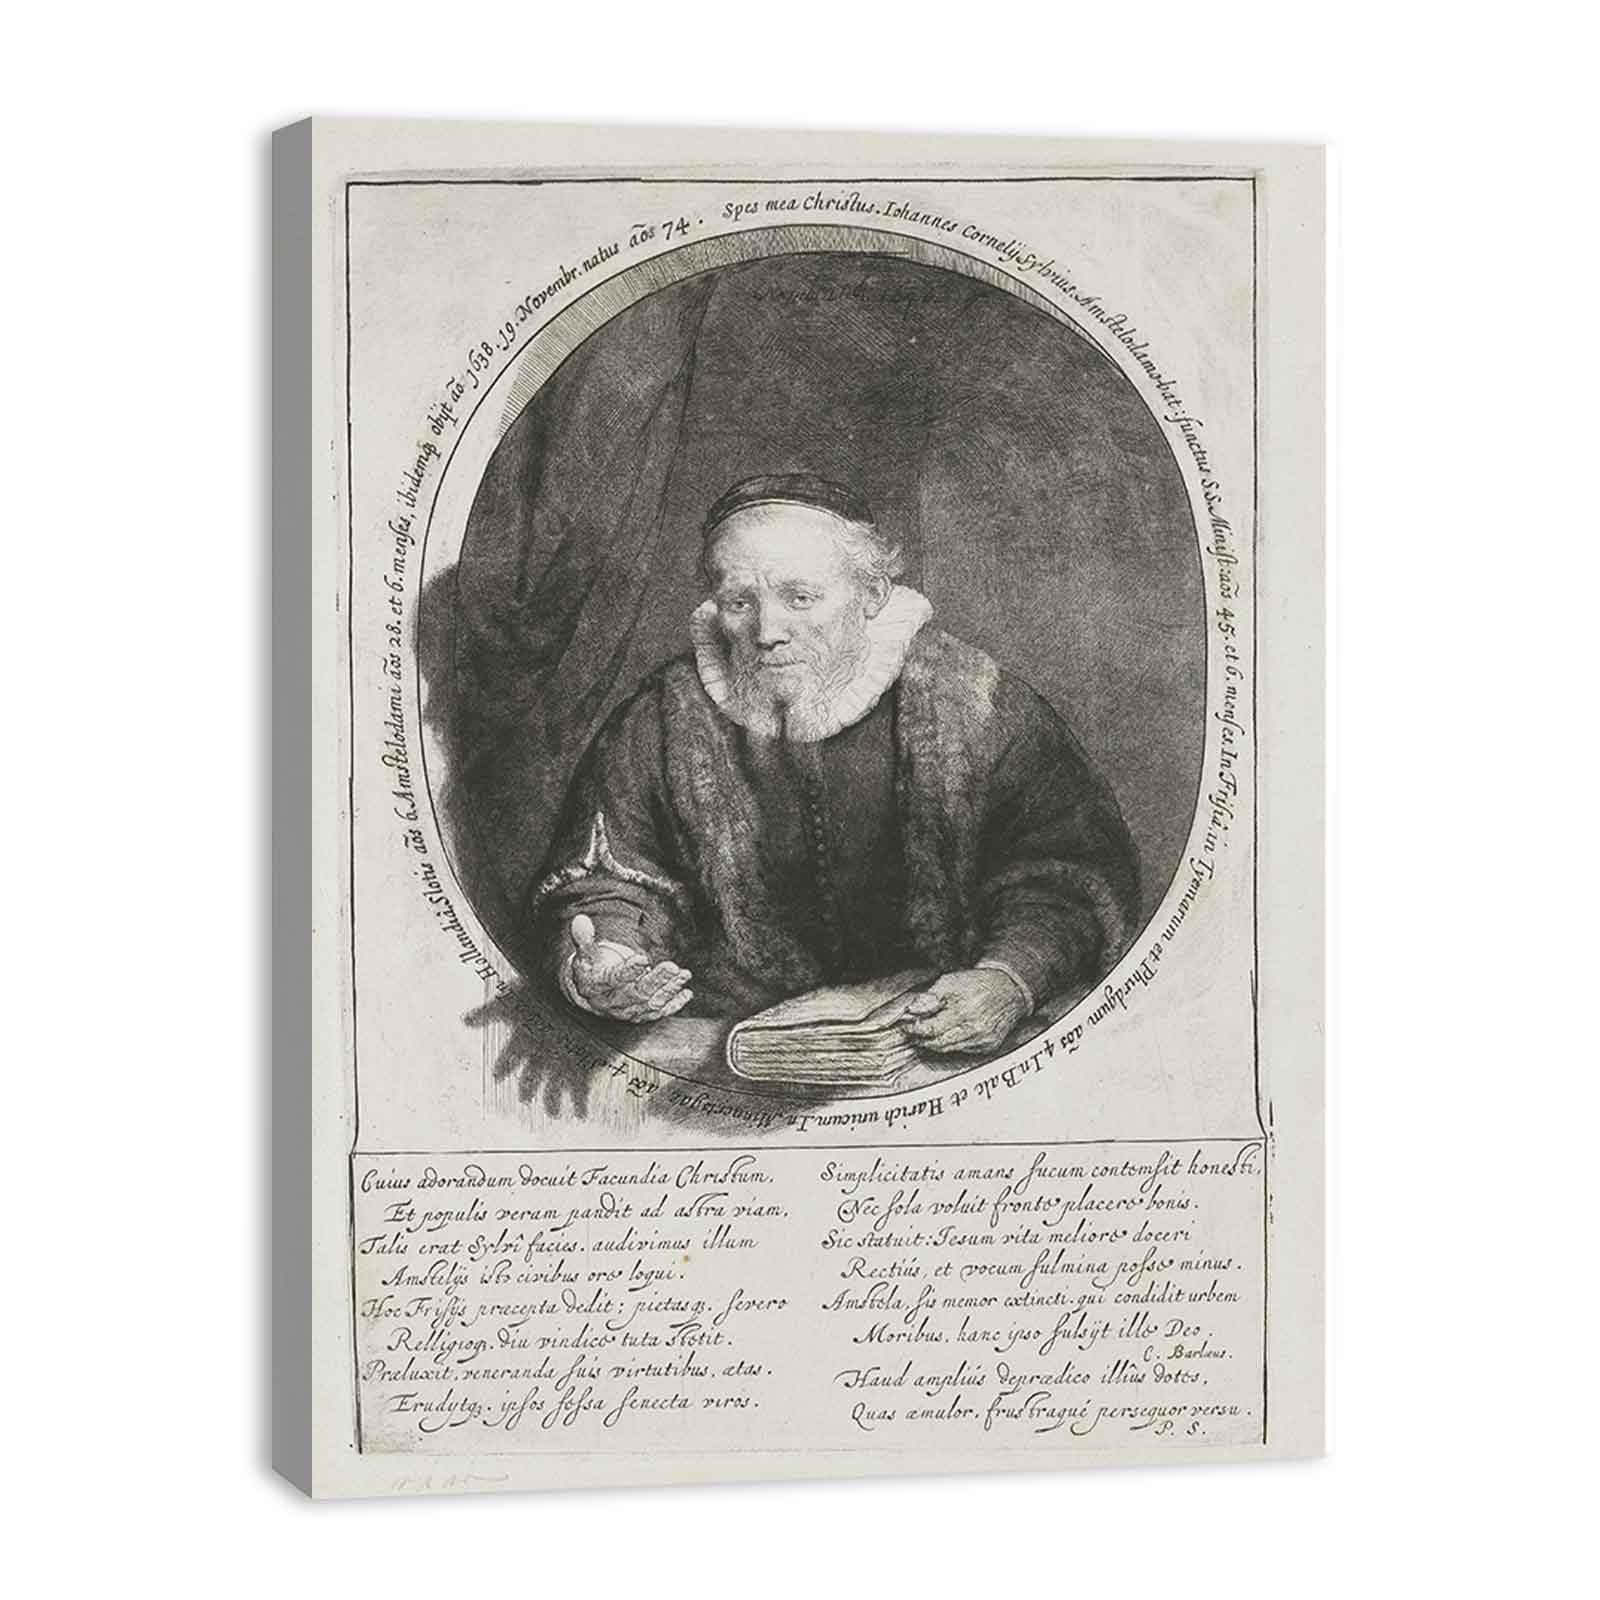 Spes mea Christus. Iohannes Cornelÿ Sylvius. Amstelodamo-bat: functus S.S. Minist: aõs 45. et 6. menses. In Frisiâ. in Tyenarum et Phirdgum aõs 4. In Balc et Harich unicum. In Minnertsgae aõs 4. In Hollandiâ. Slotis aõs 6. Amstelodami aõs 28. et 6. menses, ibidemqȝ obÿt aõ 1638. 19. Novembr. natus aõs 74.
Rembrandt 1646
Cuius adorandum docuit Facundia Christum,
Et populis veram pandit ad astra viam,
Talis erat Sylvî facies. audivimus illum
Amstelÿs isto civibus ore loqui.
Hoc Frisÿs præcepta dedit; pietasqȝ. severo
Relligioqȝ. diu vindice tuta stetit.
Præluxit, veneranda suis virtutibus, ætas.
Erudytqȝ. ipsos fessa senecta viros.
Simplicitatis amans fucum contemsit honesti,
Nec sola voluit fronte placere bonis.
Sic statuit: Iesum vita meliore doceri
Rectiùs, et vocum fulmina posse minus.
Amstela, sis memor extincti. qui condidit urbem
Moribus, hanc ipso fulsÿt ille Deo.
C. Barlæus.
Haud ampliús deprædico illîus dotes,
Quas æmulor, frustraqué persequor versu.
P. S.